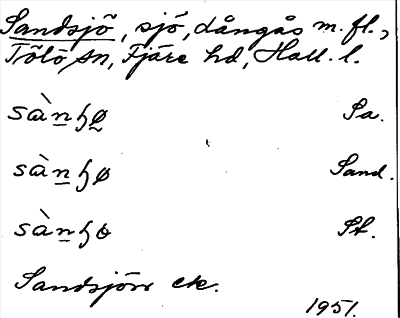 Sandsjö, sjö, Långås m.fl.,
Tölö sn, Fjäre hd, Hall. l.
sànɧø̠ Sa.
sànɧø Sand.
sànɧɵ St.
Sandsjön ek.
1951.